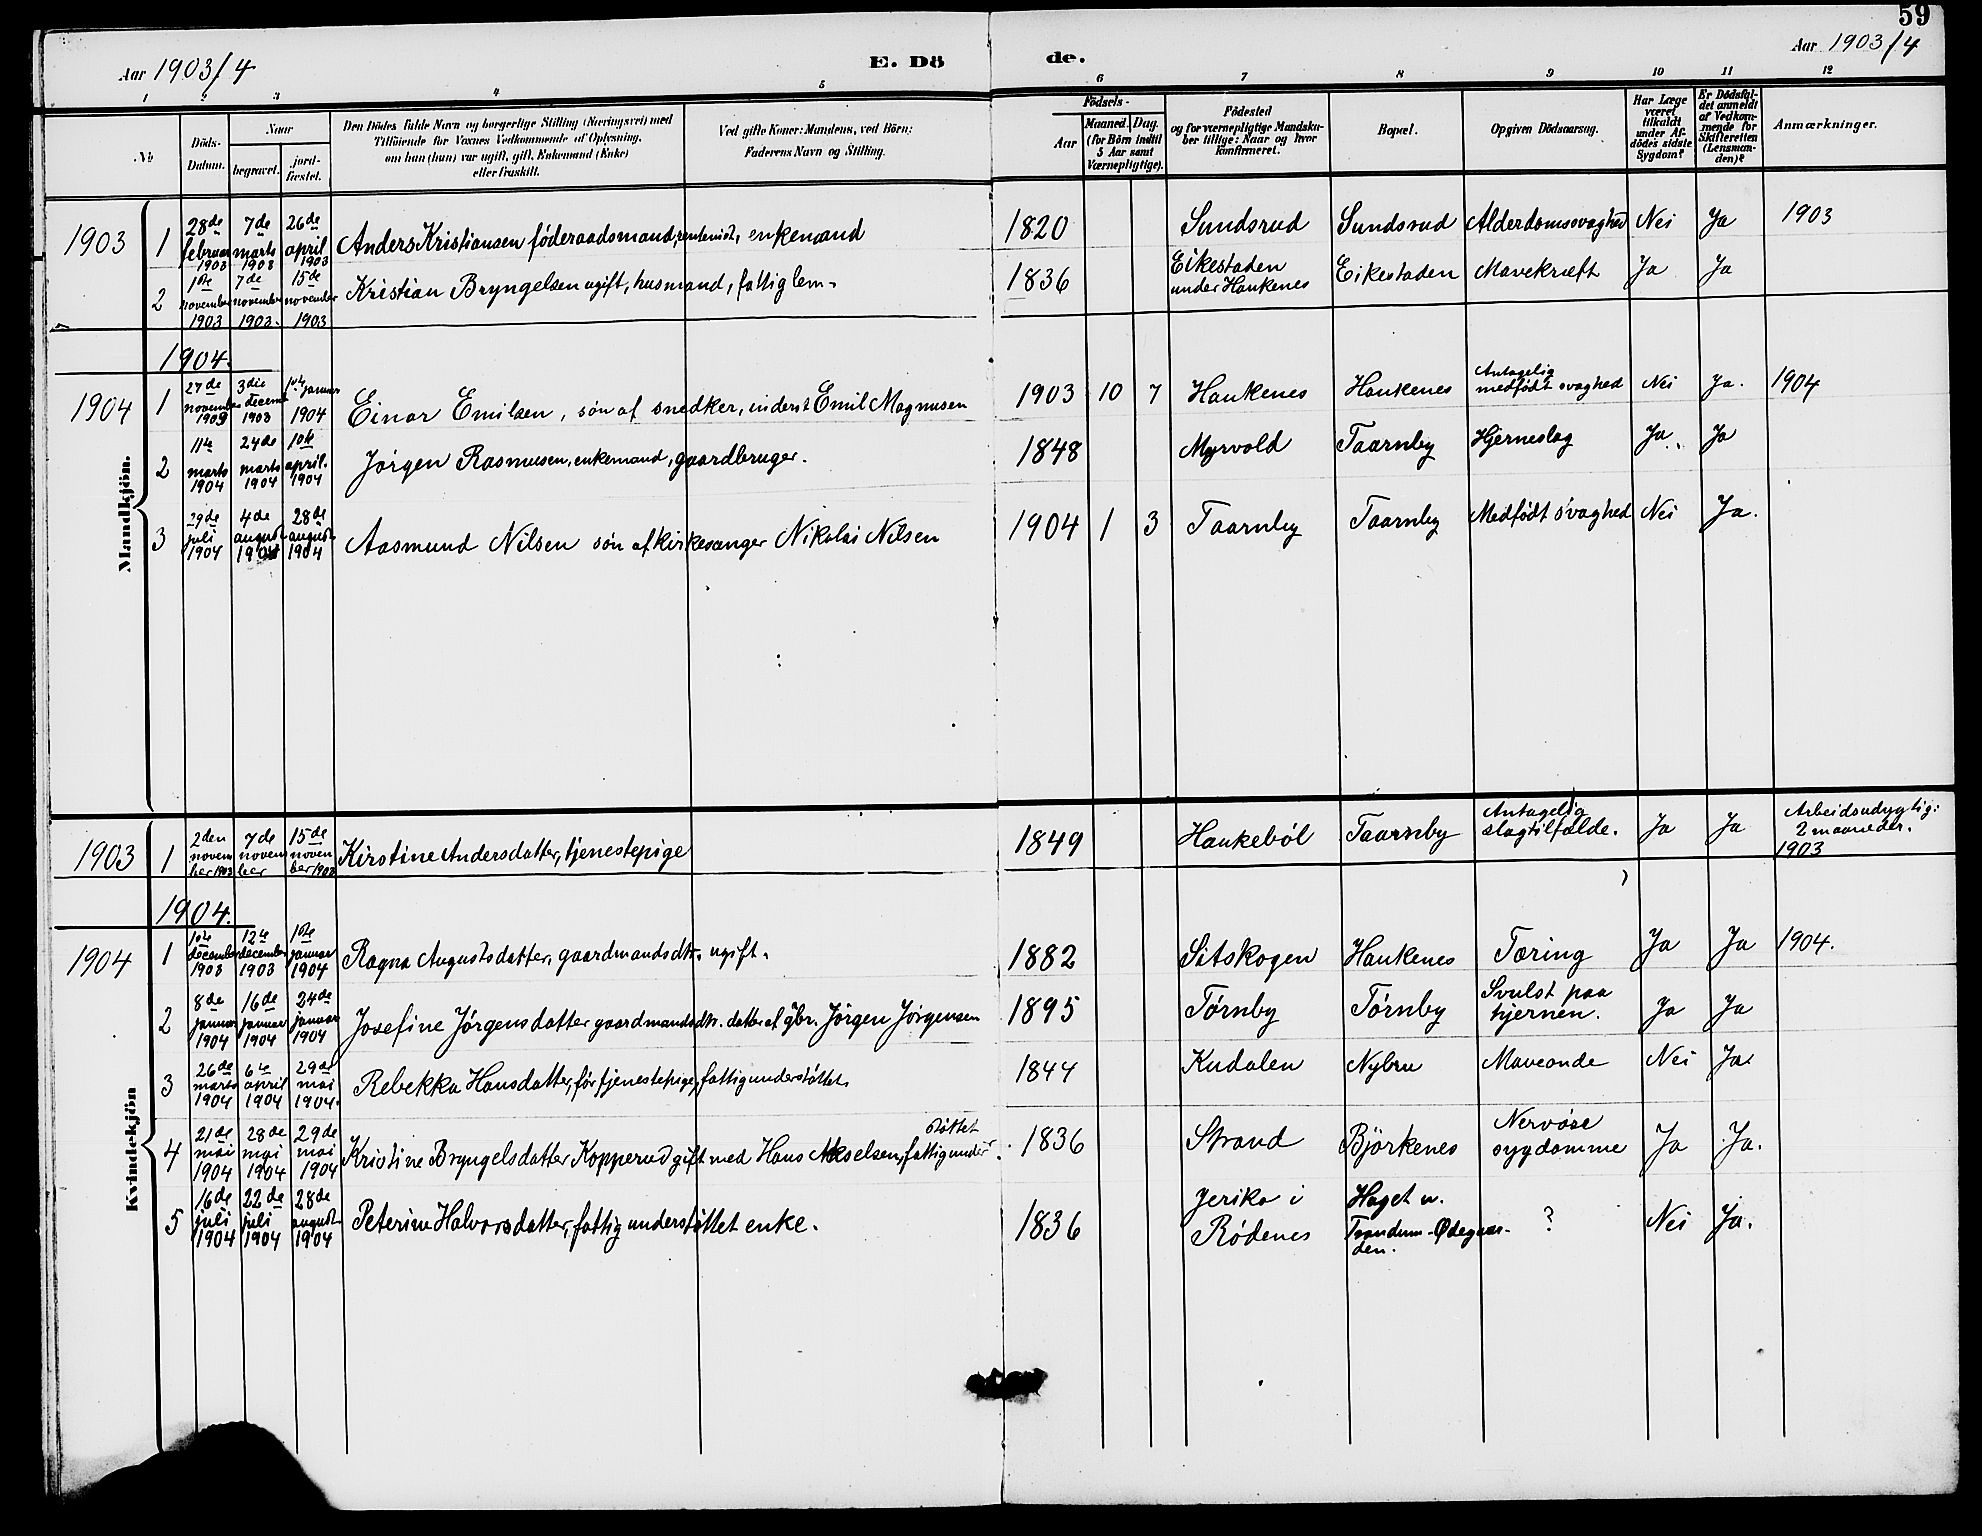 59
Aar 1903/4
E. Dö
de.
Aar 1903/4
1 2 3 4 5 6 7 8 9 10 11 12
No
Döds-Datum.
Naar
begravet.
jord-fæstet.
Den Dödes fulde Navn og borgerlige Stilling (Næringsvei) med
Tilföiende for Voxnes Vedkommende af Oplysning,
om han (hun) var ugift, gift, Enkemand (Enke)
eller fraskilt.
Ved gifte Koner: Mandens, ved Börn:
Faderens Navn og Stilling.
Födsels-
Aar
Maaned. Dag.
(for Börn indtil
5 Aar samt
Værnepligtige).
Födested
og for værnepligtige Mandska-
ber tillige: Naar og hvor
konfirmeret.
Bopæl.
Opgiven Dödsaarsag.
Har Læge
været
tilkaldt
under Af-
dödes sidste
Sygdom?
Er Dödsfal-
det anmeldt
af Vedkom-
mende for
Skifteretten
(Lensman-
den)?
Anmærkninger.
Mandkjön.
1903 1 28de februar 1903 7de marts 1903 26de april 1903 Anders Kristiansen föderaadsmand, rentenist, enkemand 1820 Sundsrud Sundsrud Alderdomssvaghed Nei Ja 1903
2 1ste november 1903 7de november 1903. 15de november 1903 Kristian Bryngelsen ugift, husmand, fattiglem. 1836 Eikestaden under Haukenes Eikestaden Mavekræft Ja Ja
1904.
1904 1 27de november 1903 3die december 1903 1ste januar 1904 Einar Emilsen, sön af snedker, inderst Emil Magnusen 1903 10 7 Haukenes Haukenes Antagelig medfödt svaghed Nei Ja. 1904
2 11te marts 1904 24de marts 1904 10de april. 1904 Jörgen Rasmusen, enkemand, gaardbruger. 1848 Myrvold Taarnby Hjerneslag Ja. Ja
3 29de juli 1904 4de august 1904 28de august 1904 Aasmund Nilsen sön af kirkesanger Nikolai Nilsen 1904 1 3 Taarnby Taarnby Medfödt svaghed Nei Ja.
Kvindekjön
1903 1 2den november 1903 7de november 15de november 1903 Kirstine Andersdatter, tjenestepige 1849 Haukeböl Taarnby Antagelig slagtilfælde. Ja Ja Arbeidsudygtig: 2 maaneder. 1903
1904.
1904 1 10de december 1903 12te december 1903 1ste januar 1904 Ragna Augustsdatter, gaardmandsdtr. ugift. 1882 Sitskogen Haukenes Tæring Ja Ja 1904.
2 8de januar 1904 16de januar 1904 24de januar 1904 Josefine Jörgensdatter gaardmandsdtr. datter af gbr. Jörgen Jörgensen 1895 Törnby Törnby Svulst paa hjernen. Ja Ja
3 26de marts 1904 6te april 1904 29de mai 1904. Rebekka Hansdatter, för tjenestepige, fattigunderstöttet. 1844 Kudalen Nybru Maveonde Nei Ja.
4 21de mai 1904 28de mai 1904 29de mai 1904 Kristine Bryngelsdatter Kopperud gift med Hans Akselsen, fattigunderstöttet. 1836 Strand Björkenes Nervöse sygdomme Ja Ja.
5 16de juli 1904 22de juli 1904 28de august 1904 Peterine Halvorsdatter, fattig understöttet enke. 1836 Jeriko i Rödenes Haget u. Trandum-Ödegaarden. ? Nei Ja.